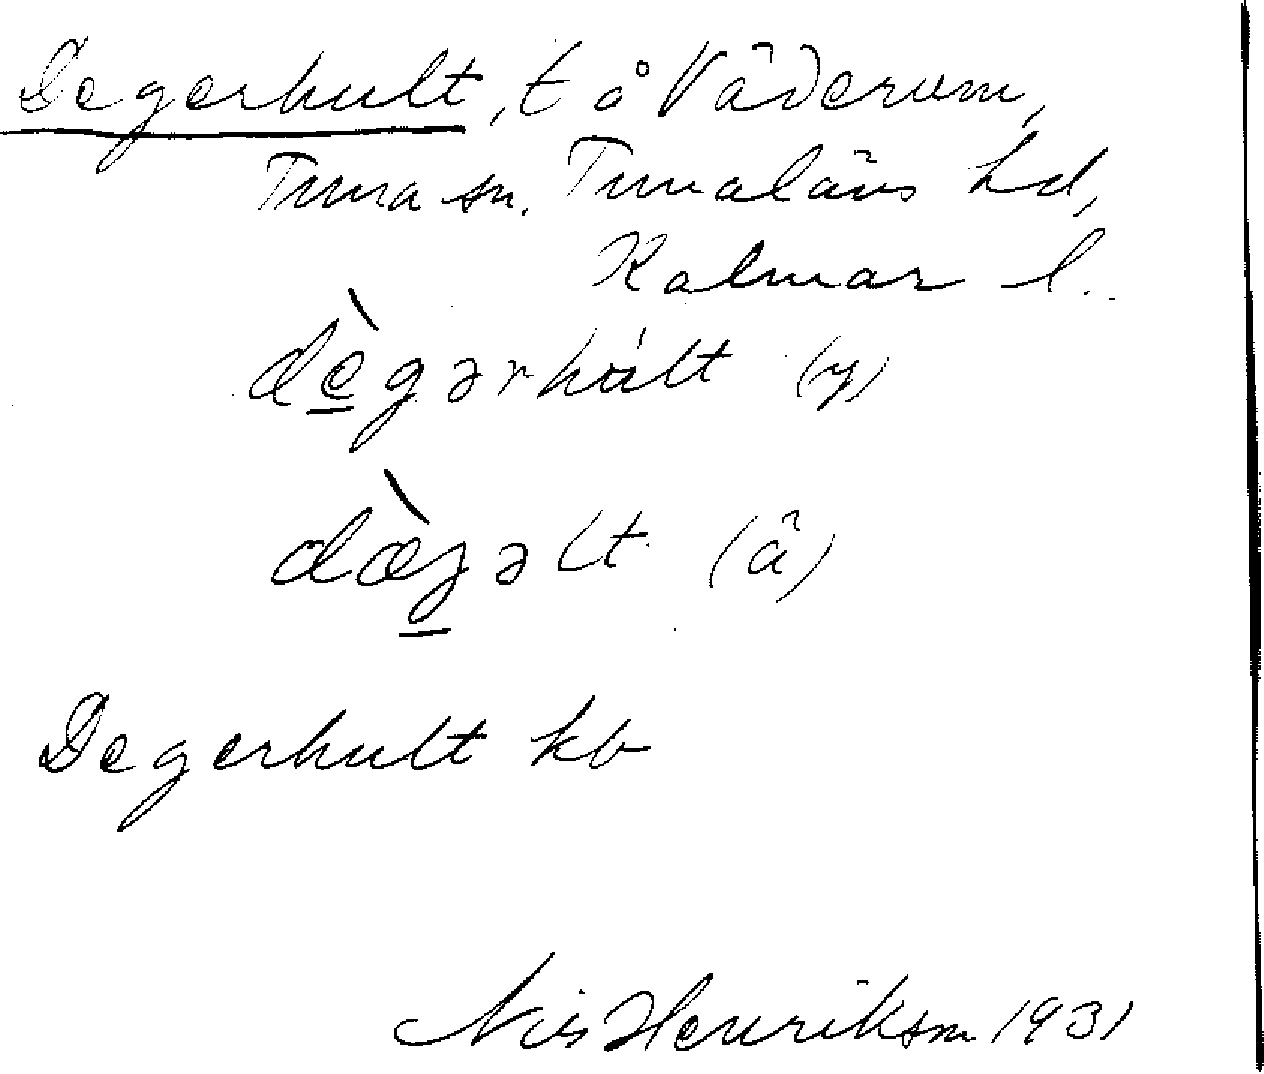 Degerhult, t å Väderum,
Tuna sn. Tunaläns hd,
Kalmar l.
dègərhúlt (y)
dæ̀gəlt (ä)
Degerhult kb
Nils Henrikson 1931